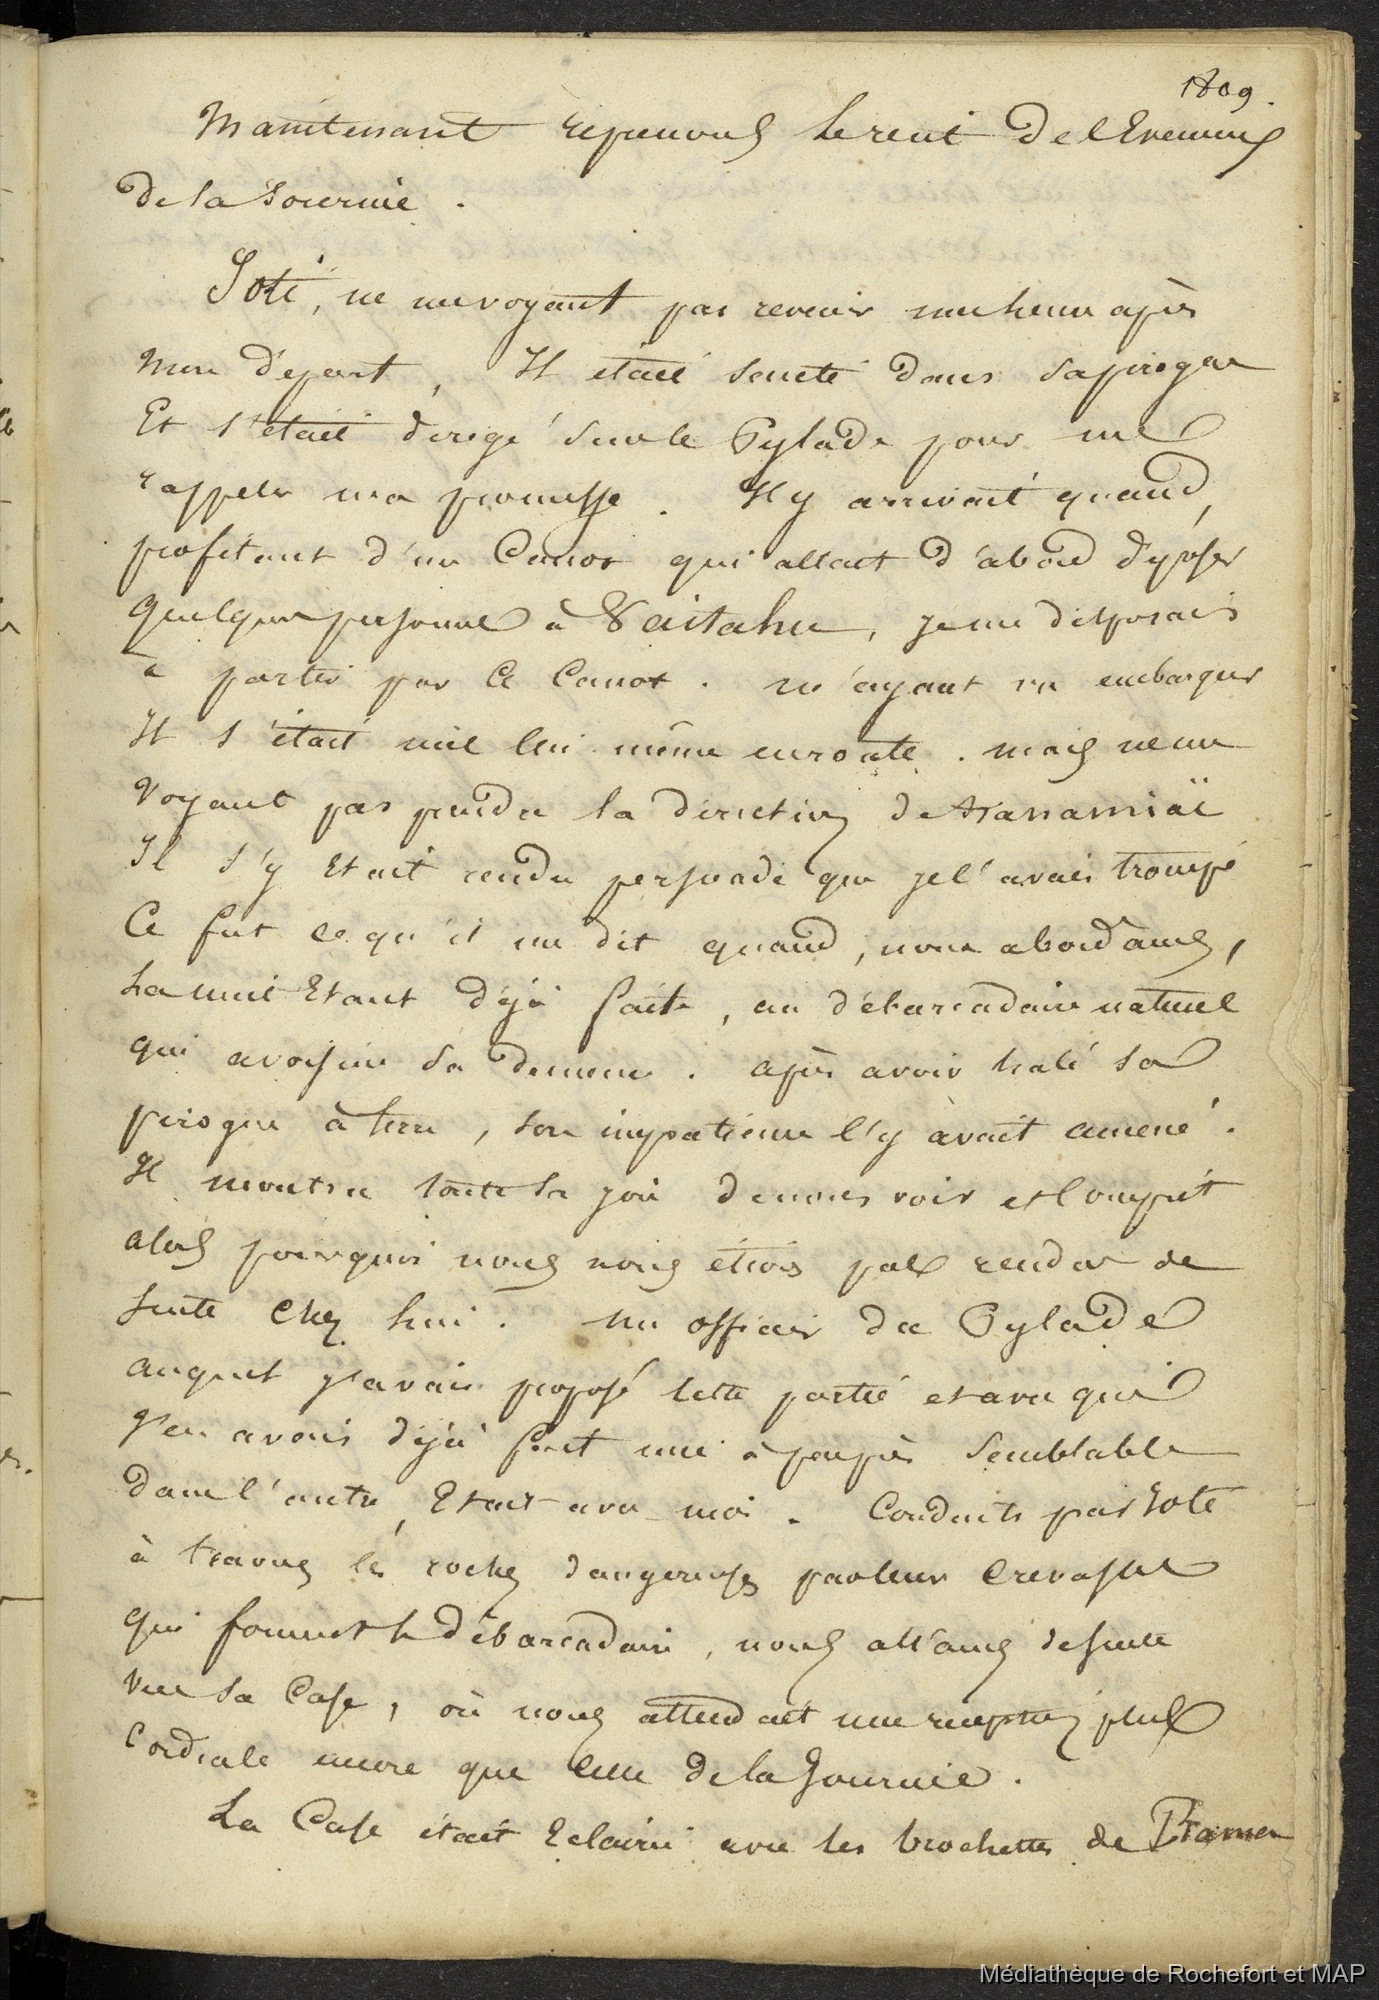 1809.
Maintenant reprenons le récit de l'Evenemens
de la Journée.
Ioté, ne me voyant pas revenir une heure après
mon départ, Il était sauté dans sa pirogue
Et s'était dirigé sur le Pylade pour me
rappeler ma promesse. Il y arrivait quand,
profitant d'un Canot qui allait d'abord déposer
quelques personnes à Vaitahu, je me disposais
à partir par ce Canot. M'ayant vu embarquer
Il s'était mis lui même en route. mais ne me
voyant pas prendre la direction de
Il s'y Etait rendu persuadé que je l'avais trompé
Ce fut ce qu'il me dit quand, nous abordames,
La nuit Etant déjà faite, au débarcadaire naturel
qui avoisine sa demeure. après avoir halé sa
pirogue à terre, son impatience l'y avait amené.
Il montra toute sa joie de nous voir et comprit
alors pourquoi nous nous étions pas rendu de
suite chez lui. Un officier du Pylade
auquel j'avais proposé cette partie et avec qui
j'en avais déjà fait une à peu près semblable
dans l'autre, Etait avec moi. Conduits par Ioté
à travers les roches dangereuses par leur crevasses
qui forment le débarcadaire, nous allames de suite
vers sa Case, où nous attendait une réception plus
Cordiale encore que celle de la Journée.
La Case était Eclairée avec les brochettes de
Médiathèque de Rochefort et MAP